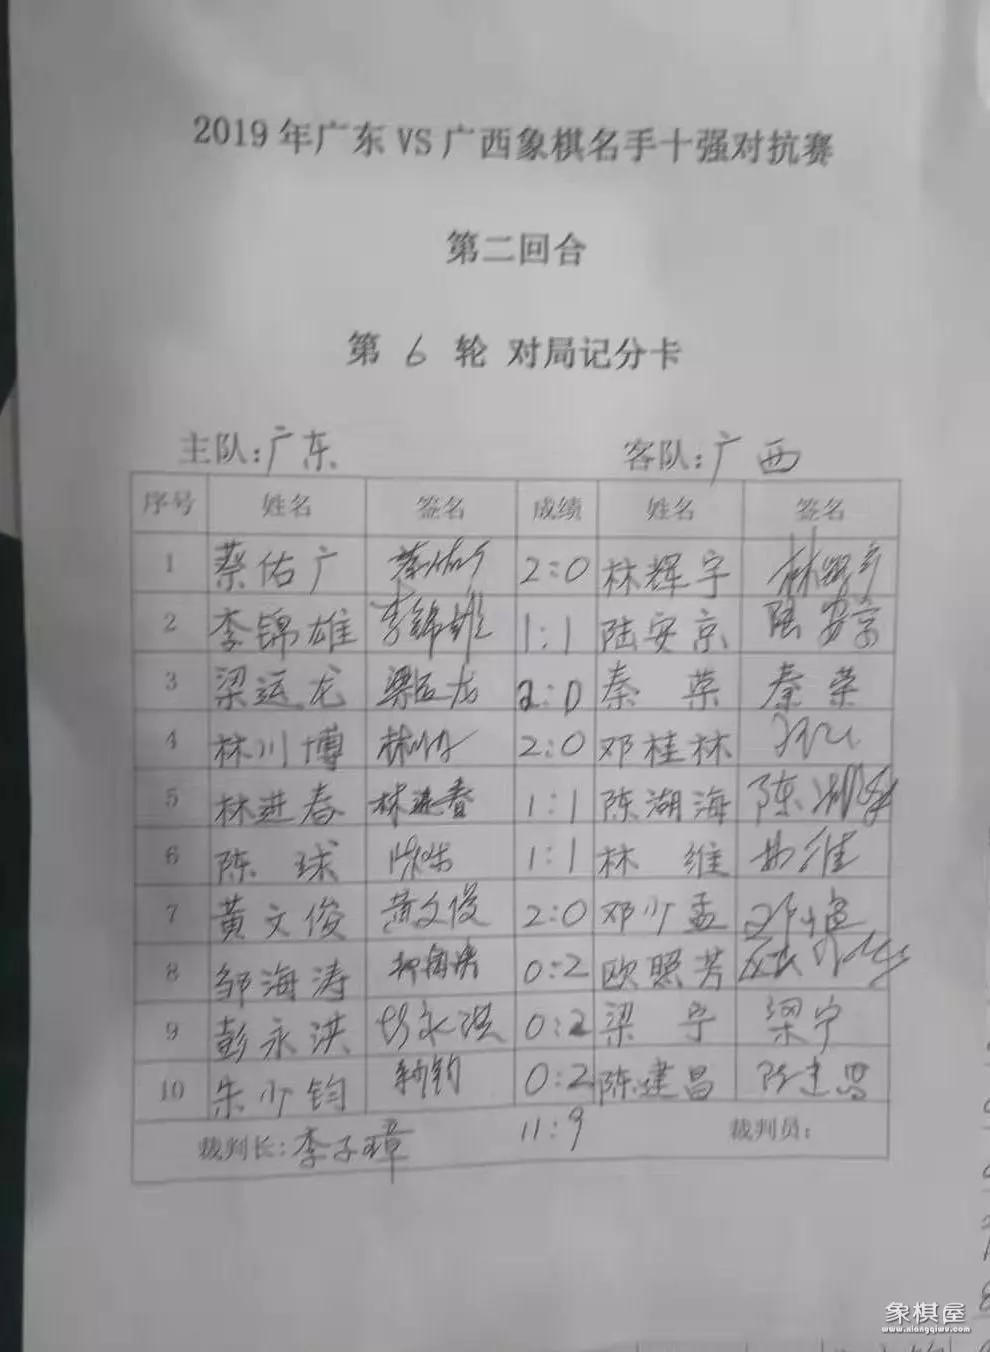 2019年广东VS广西象棋名手十强对抗赛
第二回合
第 6 轮 对局记分卡
主队:广东 客队:广西
序号 姓名 签名 成绩 姓名 签名
1 蔡佑广 蔡佑广 2:0 林辉宇 林辉宇
2 李锦雄 李锦雄 1:1 陆安京 陆安京
3 梁运龙 梁运龙 2:0 秦荣 秦荣
4 林川博 2:0 邓桂林
5 林进春 林进春 1:1 陈湖海 陈湖海
6 陈球 陈球 1:1 林维 林维
7 黄文俊 黄文俊 2:0 邓少孟
8 邹海涛 邹海涛 0:2 欧照芳
9 彭永洪 彭永洪 0:2 梁宁 梁宁
10 朱少钧 朱少钧 0:2 陈建昌 陈建昌
裁判长:李子璋 11:9 裁判员:
象棋屋
www.xiangqiwu.com